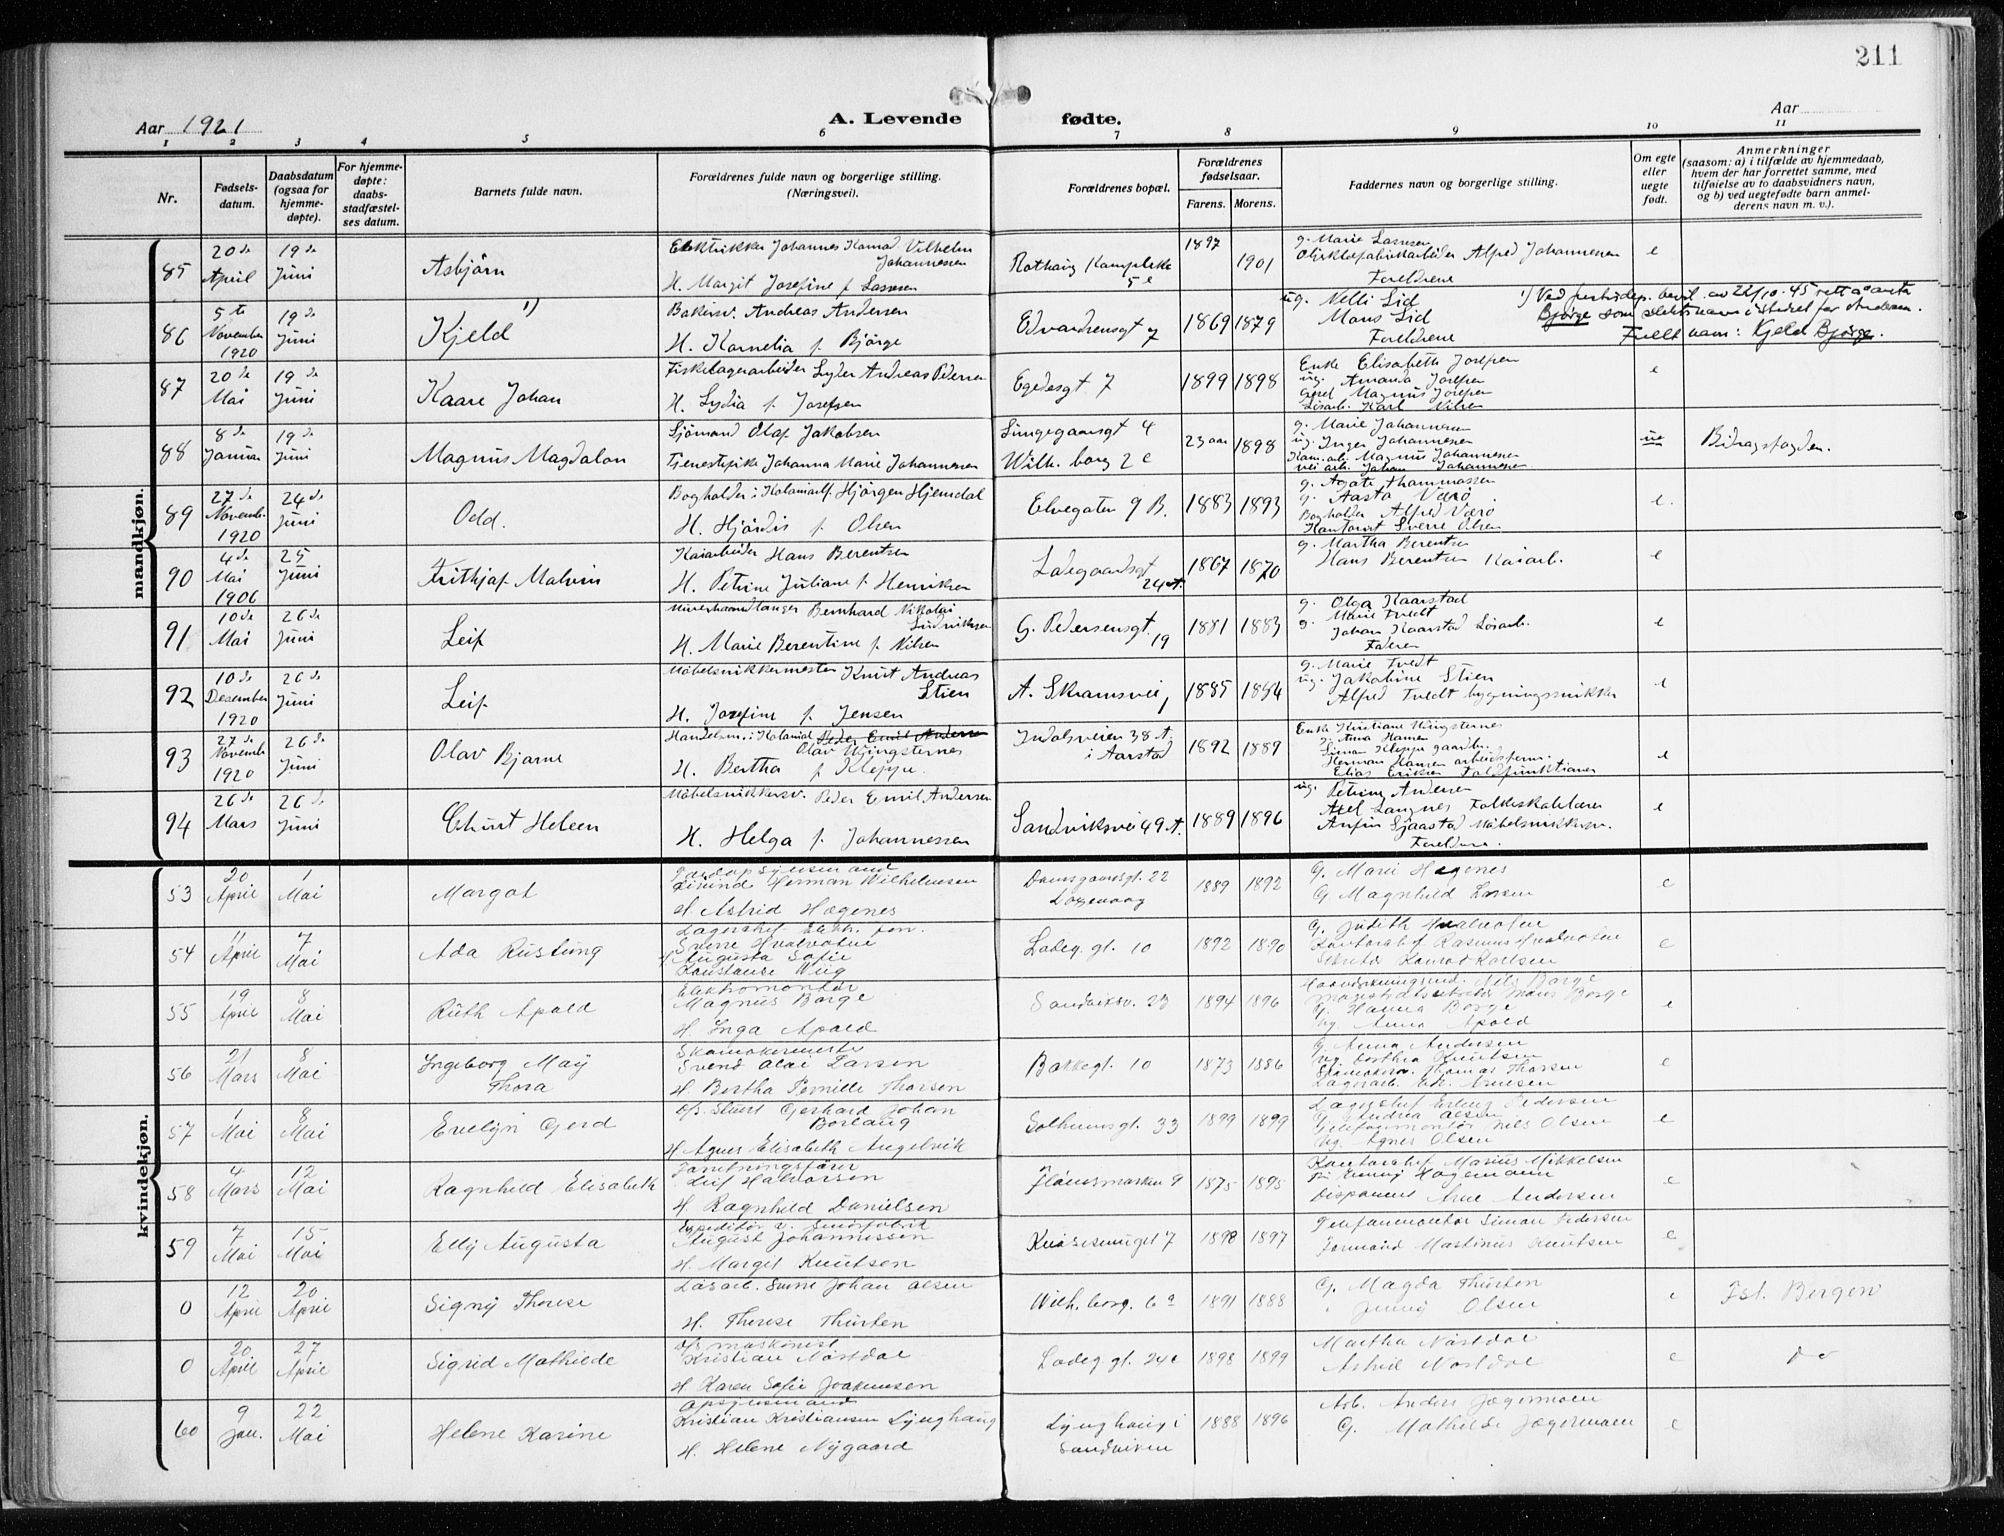 211
Aar 1921
A. Levende
fødte.
Aar
1 2 3 4 5 6 7 8 9 10 11
Nr.
Fødsels-
datum.
Daabsdatum
(ogsaa for
hjemme-
døpte).
For hjemme-
døpte:
daabs-
stadfæstel-
ses datum.
Barnets fulde navn.
Forældrenes fulde navn og borgerlige stilling.
(Næringsvei).
Forældrenes bopæl.
Forældrenes
fødselsaar.
Farens. Morens.
Faddernes navn og borgerlige stilling.
Om egte
eller
uegte
født.
Anmerkninger
(saasom: a) i tilfælde av hjemmedaab,
hvem der har forrettet samme, med
tilføielse av to daabsvidners navn,
og b) ved uegtefødte barn anmel-
derens navn m. v.).
mandkjøn.
85
20de
April
19de
Juni
Asbjørn
Johannes Konrad Vilhelm
Johannessen
H. Margit Josefine f. Lassesen
5 e
1897
1901
g. Marie Lassesen
Alfred Johannessen
Foreldrene
e
86
5te
November
1920
19de
Juni
Kjeld 1)
Bakersv. Andreas Andersen
H. Kornelia f. Bjørge
Edvardsensgt 7
1869 1879
ug. Nelli Lid
Mons Lid
Foreldrene
1) Ved justisdep. bevil. av 22/10-45 rett å anta
Bjørge som slektsnavn i stedet for Andersen.
Fullt navn: Kjeld Bjørge.
87
20de
Mai
19de
Juni
Kaare Johan
Fiskelagerarbeider Lyder Andreas Pedersen
H. Lydia f. Josefsen
Egedesgt 7
1899 1898
Enke Elisabeth Josefsen
ug. Amanda Josefsen
Magnus Josefsen
Løsarb. Karl Nilsen
e
88
8de
Januar
19de
Juni
Magnus Magdalon
Sjømand Olaf Jakobsen
Tjenestepike Johanna Marie Johannessen
Lungegaarsgt 4
Wilh. borg 2 e
23 aar 1898
g. Marie Johannessen
ug. Inger Johannessen
Magnus Johannessen
Johan Johannessen
ue
Bidragsfogden.
89
27de
Novemb.
1920
24de
Juni
Odd.
Bogholder i Kolonialf. Hjörgen Hjemdal
H. Hjördis f. Olsen
Elvegaten 9 B.
1883 1893
g. Agate Thommassen
g. Aasta Værø
Bogholder Alfred Værø
Kontorist Sverre Olsen
e.
90
4de
Mai
1906
25
Juni
Frithjof Malvin
Kaiarbeider Hans Berentsen
H. Petrine Juliane f. Henriksen
Ladegaardsgt
24 A.
1867 1870
g. Martha Berentsen
Hans Berentsen Kaiarb.
e
91
10de
Mai
26de
Juni
Leif
Murerhaandlanger Bernhard Nikolai
Ludviksen
H. Marie Berentine f. Nilsen
G. Pedersensgt.
19
1881 1883
g. Olga Kaarstad
g. Marie Tvedt
Johan Kaarstad Løsarb.
Faderen
e
92
10de
Desember
1920
26de
Juni
Leif
Møbelsnikkermester Knut Andreas
Stien
H. Josefine f. Jensen
A. Skramsvei 1
1885 1884
g. Marie Tvedt
ug. Jakobine Stien
Alfred Tvedt bygningssnikker
e
93
27de
Novemb.
1920
26de
Juni
Olav Bjarne
Handelsm. i Kolonial Peder Emil Andersen
Olav
H. Bertha f. Kleppe.
Indalsveien 38 A.
i Aarstad
1892 1889
Enke Kristiane
g. Anna Hansen
Simon Kleppe gaardbr.
Herman Hansen arbeidsform.
Elias Eriksen Toldfunktionær
e
94
26de
Mars
26de
Juni
Møbelsnikkersv. Peder Emil Andersen
H. Helga f. Johannessen
Sandviksvei 49 A.
1889 1896
ug. Petrine Andersen
Axel Langnes Folkeskolelærer
Anfin Sjaastad Møbelsnikkersv.
Foreldrene.
e
kvindekjøn.
53
20
April
1
Mai
Margot
Eivind Herman Wilhelmsen
H. Astrid Hægenes
Damsgaardsgt. 22
Laxevaag
1889 1892
G. Marie Hægenes
G Magnhild Larsen
e
54
11
April
7
Mai
Ada Rustung
Lagerchef Elektr. forr.
Sverre Hvalvolne
H Augusta Sofie
Konstanse Wiig
Ladeg. gt. 10
1892 1890
G. Judith Hvalvolne
Kontorchef Rasmus Hvalvolne
Sekretær Konrad Karlsen
e
55
19
April
8
Mai
Ruth Apold
Elektromontør
Magnus Borge
H Inga Apold
Sandviksv. 23
1894 1896
Nils Borge
Magistratssekretær Hans Borge
G. Hanna Borge
Ug Anna Apold
e
56
21
Mars
8
Mai
Ingeborg May
Thora
Skomakermester
Svend Olai Larsen
H. Bertha Pernille Thorsen
Bakkegt. 10
1873 1886
G. Anna Andersen
Ug. Dorthea Knutsen
Skomakersv. Thomas Thorsen
Lagerarb. Chr. Arnesen
e
57
1
Mai
8
Mai
Evelyn Gerd
D/s. Stuert Gerhard Johan
Borlaug
H Agnes Elisabeth Angelvik
Solheimsgt. 33
1899 1899
Lagerchef Erling Pedersen
G Andrea Olsen
Telefonmontør Nils Olsen
Ug. Agnes Olsen
e
58
4
Mars
12
Mai
Ragnhild Elisabeth
Forretningsfører
Leif Halvorsen
H. Ragnhild Danielsen
Fløensmarken 9
1875 1895
Kontorchef Marius Mikkelsen
Frk Jenny Hagemann
Disponent Arne Andersen
e
59
7
Mai
15
Mai
Elly Augusta
Expeditør v. Smørfabrik
August Johannessen
H. Margit Knutsen
Knøsesmuget 7
1898 1897
Telefonmontør Simon Pedersen
Formand Martinus Knutsen
e
0
12
April
20
April
Signy Therese
Løsarb. Sverre Johan Olsen
H. Therese Thorsten
Wilh. borg. 6 a
1891 1888
G. Magda Thorsten
" Jenny Olsen
e
Fst. Bergen
0
20
April
27
April
Sigrid Mathilde
D/s maskinist
Kristian Nøstdal
H Karen Sofie Joakimsen
Ladeg. gt. 24 e
1898 1899
Martha Nøstdal
Astrid Nøstdal
e
do
60
9
Jan.
22
Mai
Helene Karine
Opsynsmand
Kristian Kristiansen Lynghaug
H. Helene Nygaard
Lynghaug i
Sandviken
1888 1896
Arb. Anders Jægermoen
G. Mathilde Jægermoen
e